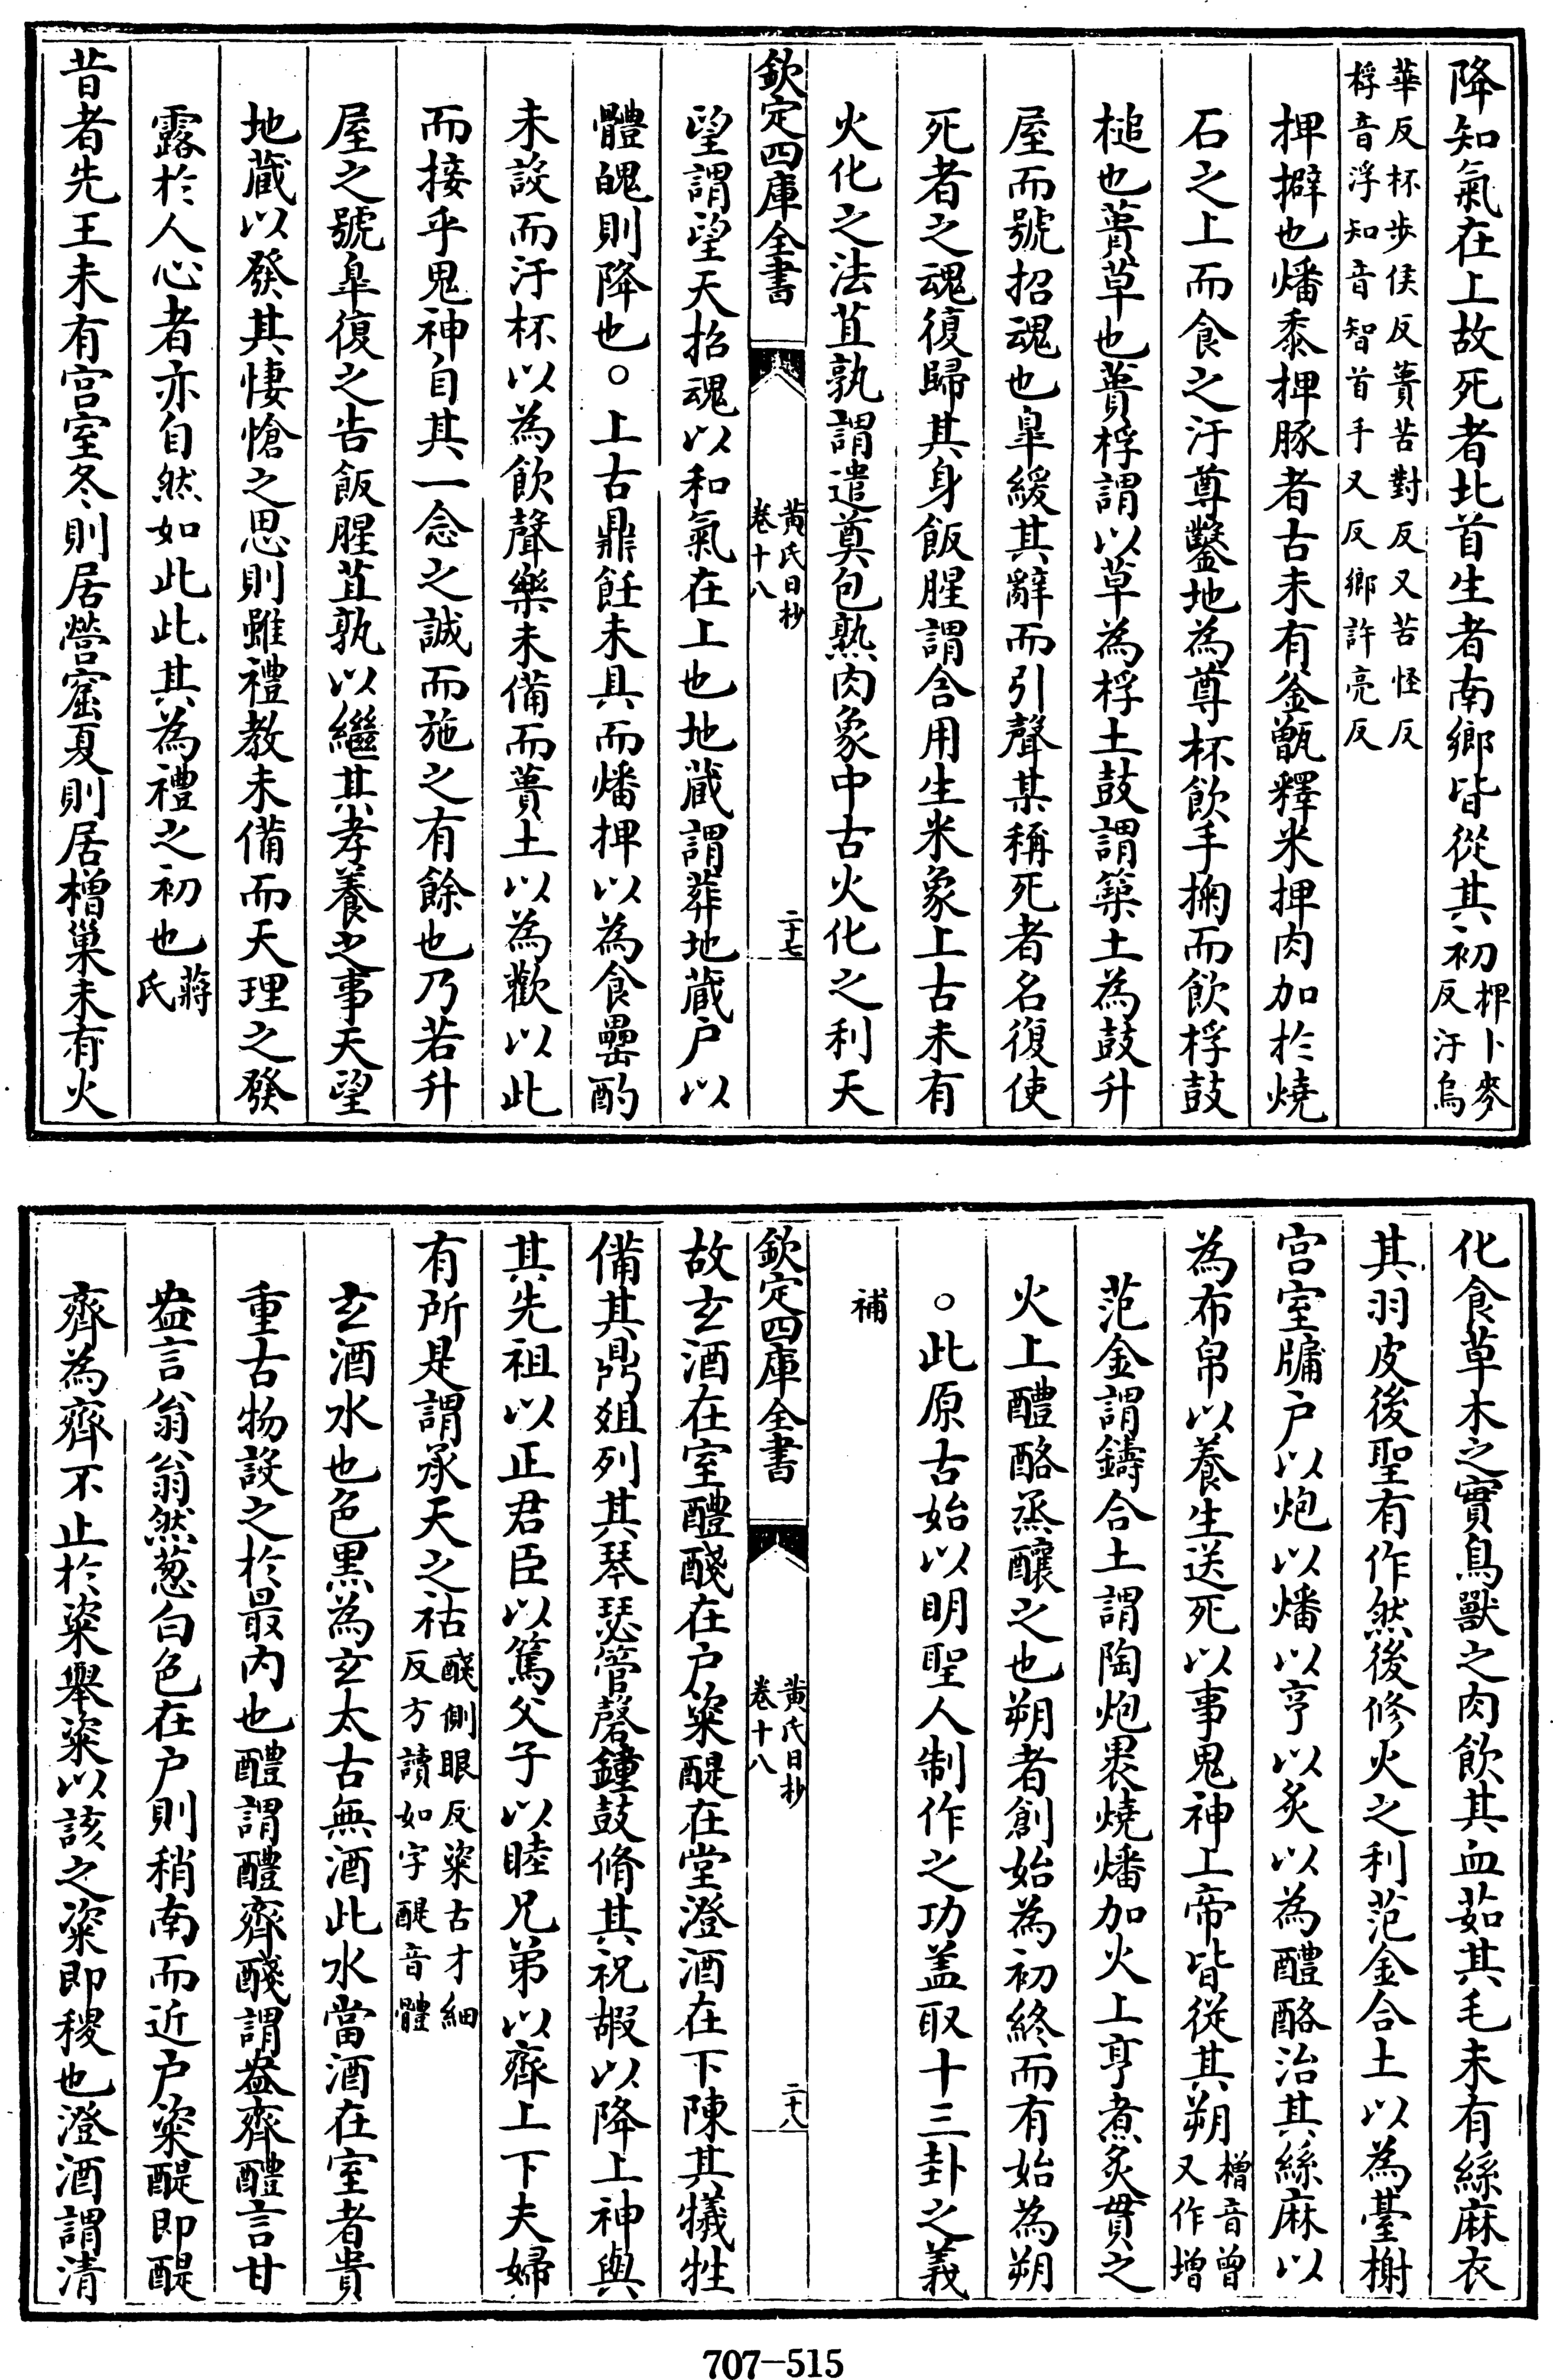 降知氣在上故死者北首生者南鄉皆從其初押卜麥反汙烏
華反杯步侯反蕢苦對反又苦怪反桴音浮知音智首手又反鄉許亮反
押擗也燔黍押豚者古未有釜甑釋米押肉加於燒
石之上而食之汙尊鑿地為尊杯飲手掬而飲桴鼓
槌也蕢草也蕢桴謂以草為桴土鼓謂築土為鼓升
屋而號招魂也臯緩其辭而引聲某稱死者名復使
死者之魂復歸其身飯腥謂含用生米象上古未有
火化之法苴孰謂遣奠包熟肉象中古火化之利天
欽定四庫全書 黄氏日抄卷十八 二十七
望謂望天招魂以和氣在上也地蔵謂葬地蔵户以
體魄則降也○上古鼎飪未具而燔押以為食罍酌
未設而汙杯以為飲聲樂未備而蕢土以為歡以此
而接乎鬼神自其一念之誠而施之有餘也乃若升
屋之號臯復之告飯腥苴孰以繼其孝養之事天望
地蔵以發其悽愴之思則雖禮教未備而天理之發
露於人心者亦自然如此此其為禮之初也蔣氏
昔者先王未有宫室冬則居營窟夏則居橧巢未有火
化食草木之實鳥獸之肉飲其血茹其毛未有絲麻衣
其羽皮後聖有作然後修火之利范金合土以為臺榭
宫室牖户以炮以燔以亨以炙以為醴酪治其絲麻以
為布帛以養生送死以事鬼神上帝皆從其朔橧音曾又作增
范金謂鑄合土謂陶炮裹燒燔加火上亨煮炙貫之
火上醴酪蒸釀之也朔者創始為初終而有始為朔
○此原古始以明聖人制作之功盖取十三卦之義
補
欽定四庫全書 黄氏日抄卷十八 二十八
故玄酒在室醴醆在户粢醍在堂澄酒在下陳其犧牲
備其鼎俎列其琴瑟管磬鐘鼓脩其祝嘏以降上神與
其先祖以正君臣以篤父子以睦兄弟以齊上下夫婦
有所是謂承天之祜醆側眼反粢古才細反方讀如字醍音體
玄酒水也色黒為玄太古無酒此水當酒在室者貴
重古物設之於最内也醴謂醴齊醆謂盎齊醴言甘
盎言翁翁然葱白色在户則稍南而近户粢醍即醍
齊為齊不止於粢舉粢以該之粢即稷也澄酒謂清
707-515